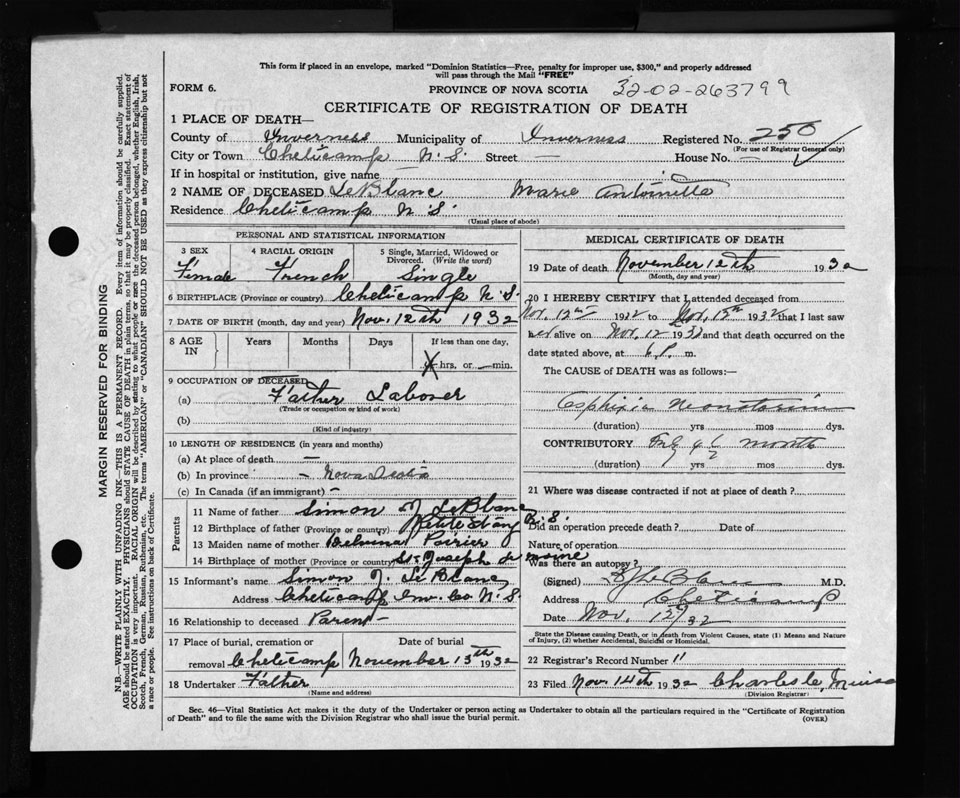 This form if placed in an envelope, marked "Dominion Statistics—Free, penalty for improper use, $300," and properly addressed
will pass through the Mail "FREE"
FORM 6. PROVINCE OF NOVA SCOTIA 32-02-263799
CERTIFICATE OF REGISTRATION OF DEATH
1 PLACE OF DEATH—
County of Inverness Municipality of Inverness Registered No. 250
(For use of Registrar General only)
City or Town Cheticamp N.S. Street — House No. —
If in hospital or institution, give name —
2 NAME OF DECEASED LeBlanc Marie Antoinette
Residence Cheticamp N.S.
(Usual place of abode)
PERSONAL AND STATISTICAL INFORMATION
3 SEX 4 RACIAL ORIGIN 5 Single, Married, Widowed or
Divorced. (Write the word)
Female French Single
6 BIRTHPLACE (Province or country) Cheticamp N.S.
7 DATE OF BIRTH (month, day and year) Nov. 12th 1932
8 AGE IN Years Months Days If less than one day,
hrs. or — min.
9 OCCUPATION OF DECEASED
(a) Father Laborer
(Trade or occupation or kind of work)
(b)
(Kind of industry)
10 LENGTH OF RESIDENCE (in years and months)
(a) At place of death —
(b) In province — Nova Scotia
(c) In Canada (if an immigrant) —
Parents
11 Name of father Simon J. LeBlanc
12 Birthplace of father (Province or country) Petite Etang N.S.
13 Maiden name of mother Delvina Poirier
14 Birthplace of mother (Province or country) St. Joseph du moine
15 Informant's name Simon J. LeBlanc
Address Cheticamp Inv. Co N.S.
16 Relationship to deceased Parent —
17 Place of burial, cremation or Date of burial
removal Cheticamp November 13th 1932
18 Undertaker Father
(Name and address)
MEDICAL CERTIFICATE OF DEATH
19 Date of death November 12th 1932
(Month, day and year)
20 I HEREBY CERTIFY that I attended deceased from
Nov. 12th 1932 to Nov. 12th 1932 that I last saw
her alive on Nov. 12 1932 and that death occurred on the
date stated above, at m.
The CAUSE of DEATH was as follows:—
(duration) yrs mos dys.
CONTRIBUTORY month
(duration) yrs mos dys.
21 Where was disease contracted if not at place of death?
Did an operation precede death? Date of
Nature of operation
Was there an autopsy?
(Signed) LeBlanc M.D.
Address Cheticamp
Date Nov. 12/32
State the Disease causing Death, or in death from Violent Causes, state (1) Means and Nature
of Injury, (2) whether Accidental, Suicidal or Homicidal.
22 Registrar's Record Number 11
23 Filed Nov. 14th 1932 Charles
(Division Registrar)
Sec. 46—Vital Statistics Act makes it the duty of the Undertaker or person acting as Undertaker to obtain all the particulars required in the "Certificate of Registration
of Death" and to file the same with the Division Registrar who shall issue the burial permit. (OVER)
MARGIN RESERVED FOR BINDING
N.B.—WRITE PLAINLY WITH UNFADING INK—THIS IS A PERMANENT RECORD. Every item of information should be carefully supplied.
AGE should be stated EXACTLY. PHYSICIANS should STATE CAUSE OF DEATH in plain terms, so that it may be properly classified. Exact statement of
OCCUPATION is very important. RACIAL ORIGIN will be described by stating to what people or race the deceased person belonged, whether English, Irish,
Scotch, French, German, Russian, Ruthenian, etc. The terms "AMERICAN" or "CANADIAN" SHOULD NOT BE USED as they express citizenship but not
a race or people. See instructions on back of Certificate.